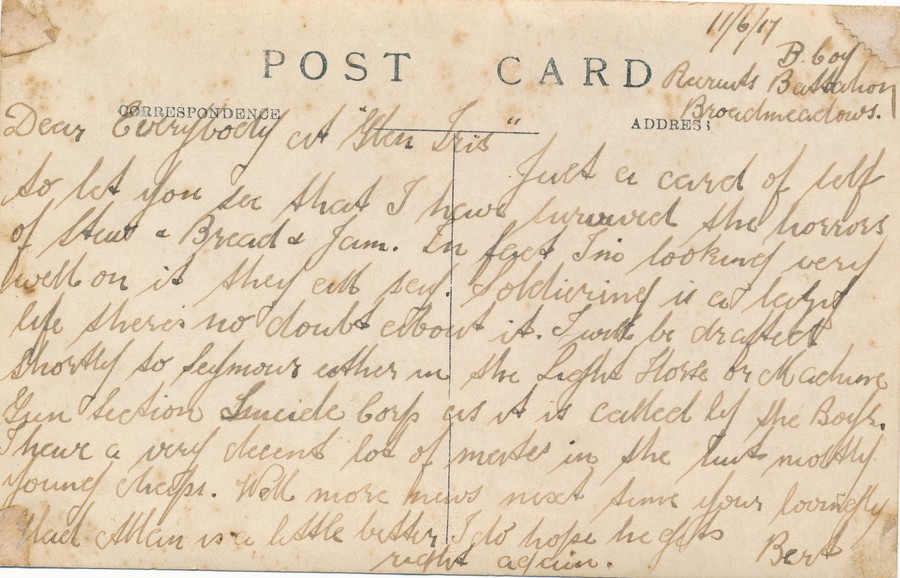 11/6/17
B. Coy
Recruits Battalion
Broadmeadows.
POST CARD
CORRESPONDENCE
ADDRESS
Dear Everybody at "Glen Iris"
Just a card of self
to let you see that I have survived the horrors
of Stew & Bread & Jam. In fact I'm looking very
well on it they all say. Soldiering is a
life there's no doubt about it. I will be drafted
shortly to Seymour either in the Light Horse or Machine
Gun Section Suicide Corp as it is called by the Boys.
I have a very decent lot of mates in the hut mostly
young chaps. Well more news next time your lovingly
Bert
Glad Allan is a little better I do hope he gets
right again.